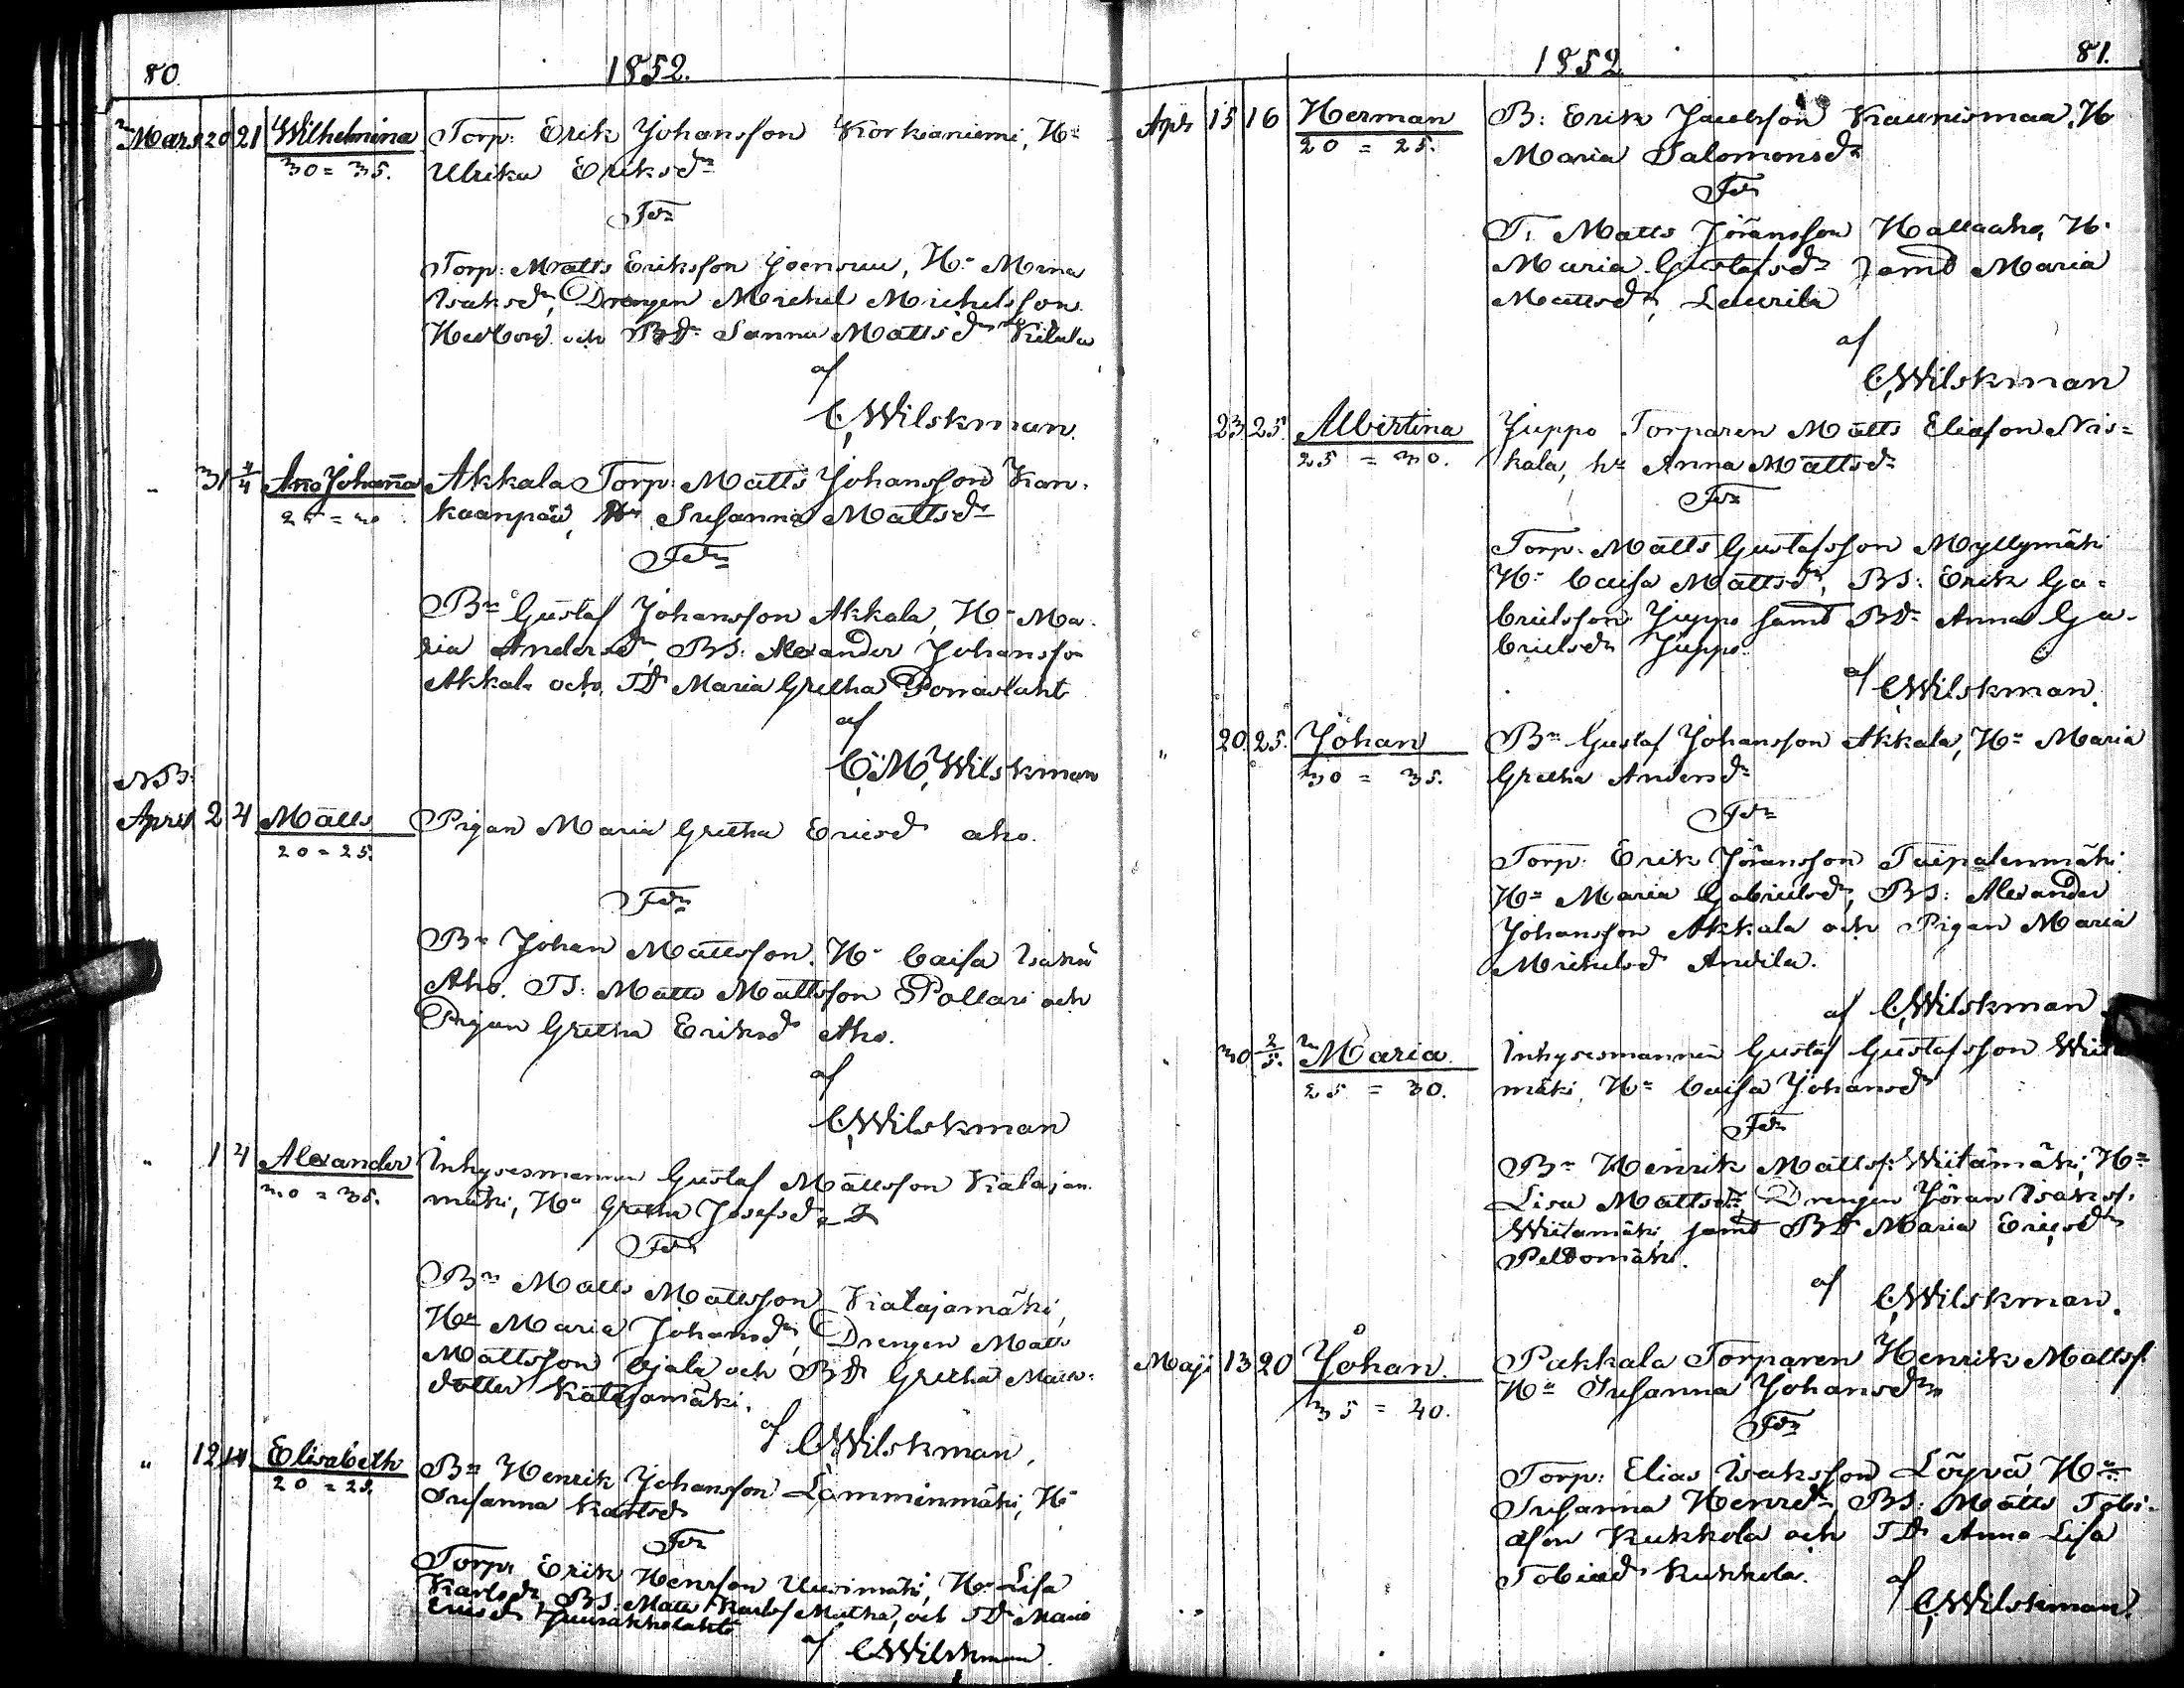 80.
1852.
Mars 20 21 Wilhelmina Torp: Erik Johansson Korkianiemi, Hu
30 = 35. Ulrika Eriksdr
Fdr
Torp: Matts Eriksson Joensuu, Hu
Isaksdr, Drengen Michel Michelsson
och Bdr Sanna Mattsdr
af
C. Wilskman.
" 31 1/4 Ana Johana Akkala Torp: Matts Johansson Kan-
25 = 30 kaanpää, Hu Susanna Mattsdr
Fdr
Bn Gustaf Johansson Akkala, Hu Ma-
ria Andersdr, BS: Alexander Johansson
Akkala och TDr Maria Gretha Porraslaht
af
C. M. Wilskman
NB:
April 2 4 Matts Pigan Maria Gretha Ericsd aho.
20 = 25.
Fdr
Bn Johan Mattsson, Hu Caisa Isaksd
Aho. TS: Matts Mattsson Pollari och
Pigan Gretha Eriksd Aho.
af
C. Wilskman
" 1 4 Alexander Inhysesmannen Gustaf Mattsson Katajan
30 = 35. mäki, Hu Gretha Josefsdr
Fdr
Bn Matts Mattsson Katajamäki,
Hu Maria Johansdr, Drengen Matts
Mattsson Ojala och BDr Gretha Matts-
dotter Katajamäki.
af C. Wilskman.
" 12 14 Elisabeth Bn Henrik Johansson Lamminmäki, Hu
20 = 25. Susanna Karlsdr
Fdr
Torp: Erik Henrsson Uusimäki, Hu Lisa
Karlsdr, BS: Matts Karlsf Mutka, och TDr Maria
Ericsd
af C. Wilskman.
1852
81.
Apr 15 16 Herman B: Erik Jacobsson Kaunismaa, Hu
20 = 25. Maria Salomonsdr
Fdr
T. Matts Jöransson Hallaaho, Hu
Maria Gustafsdr samt Maria
Mattsdr, Laurila
af
C. Wilskman
" 23 25. Albertina Juppo Torparen Matts Eliasson Nis-
25 = 30. kala, hu Anna Mattsdr
Fdr
Torp: Matts Gustafsson Myllymäki
Hu Caisa Mattsdr, BS: Erik Ga-
brielsson Juppo samt BDr Anna Ga-
brielsdr Juppo.
af C. Wilskman.
" 20. 25. Johan Bn Gustaf Johansson Akkala, Hu Maria
30 = 35. Gretha Andersdr
Fdr
Torp: Erik Jöransson Taipalenmäki
Hu Maria Gabrielsdr, BS: Alexander
Johansson Akkala och Pigan Maria
Michelsd Anvila.
af C. Wilskman
" 30 2/5. Maria. Inhysesmannen Gustaf Gustafsson Wiita
25 = 30. mäki, Hu Caisa Johansdr
Fdr
Bn Henrik Mattsf: Wiitamäki, Hu
Lisa Mattsdr, Drengen Jöran Isaksf.
Wiitamäki, samt BDr Maria Ericsdr
Peltomäki.
af C. Wilskman.
Maji 13 20 Johan. Pukkala Torparen Henrik Mattsf.
35 = 40. Hu Susanna Johansdr
Fdr
Torp: Elias Isaksson Löyvä, Hu
Susanna Henrsdr, BS: Matts Tobi-
asson Kukkola och TDr Anna Lisa
Tobiasd Kukkola.
af
C. Wilskman.